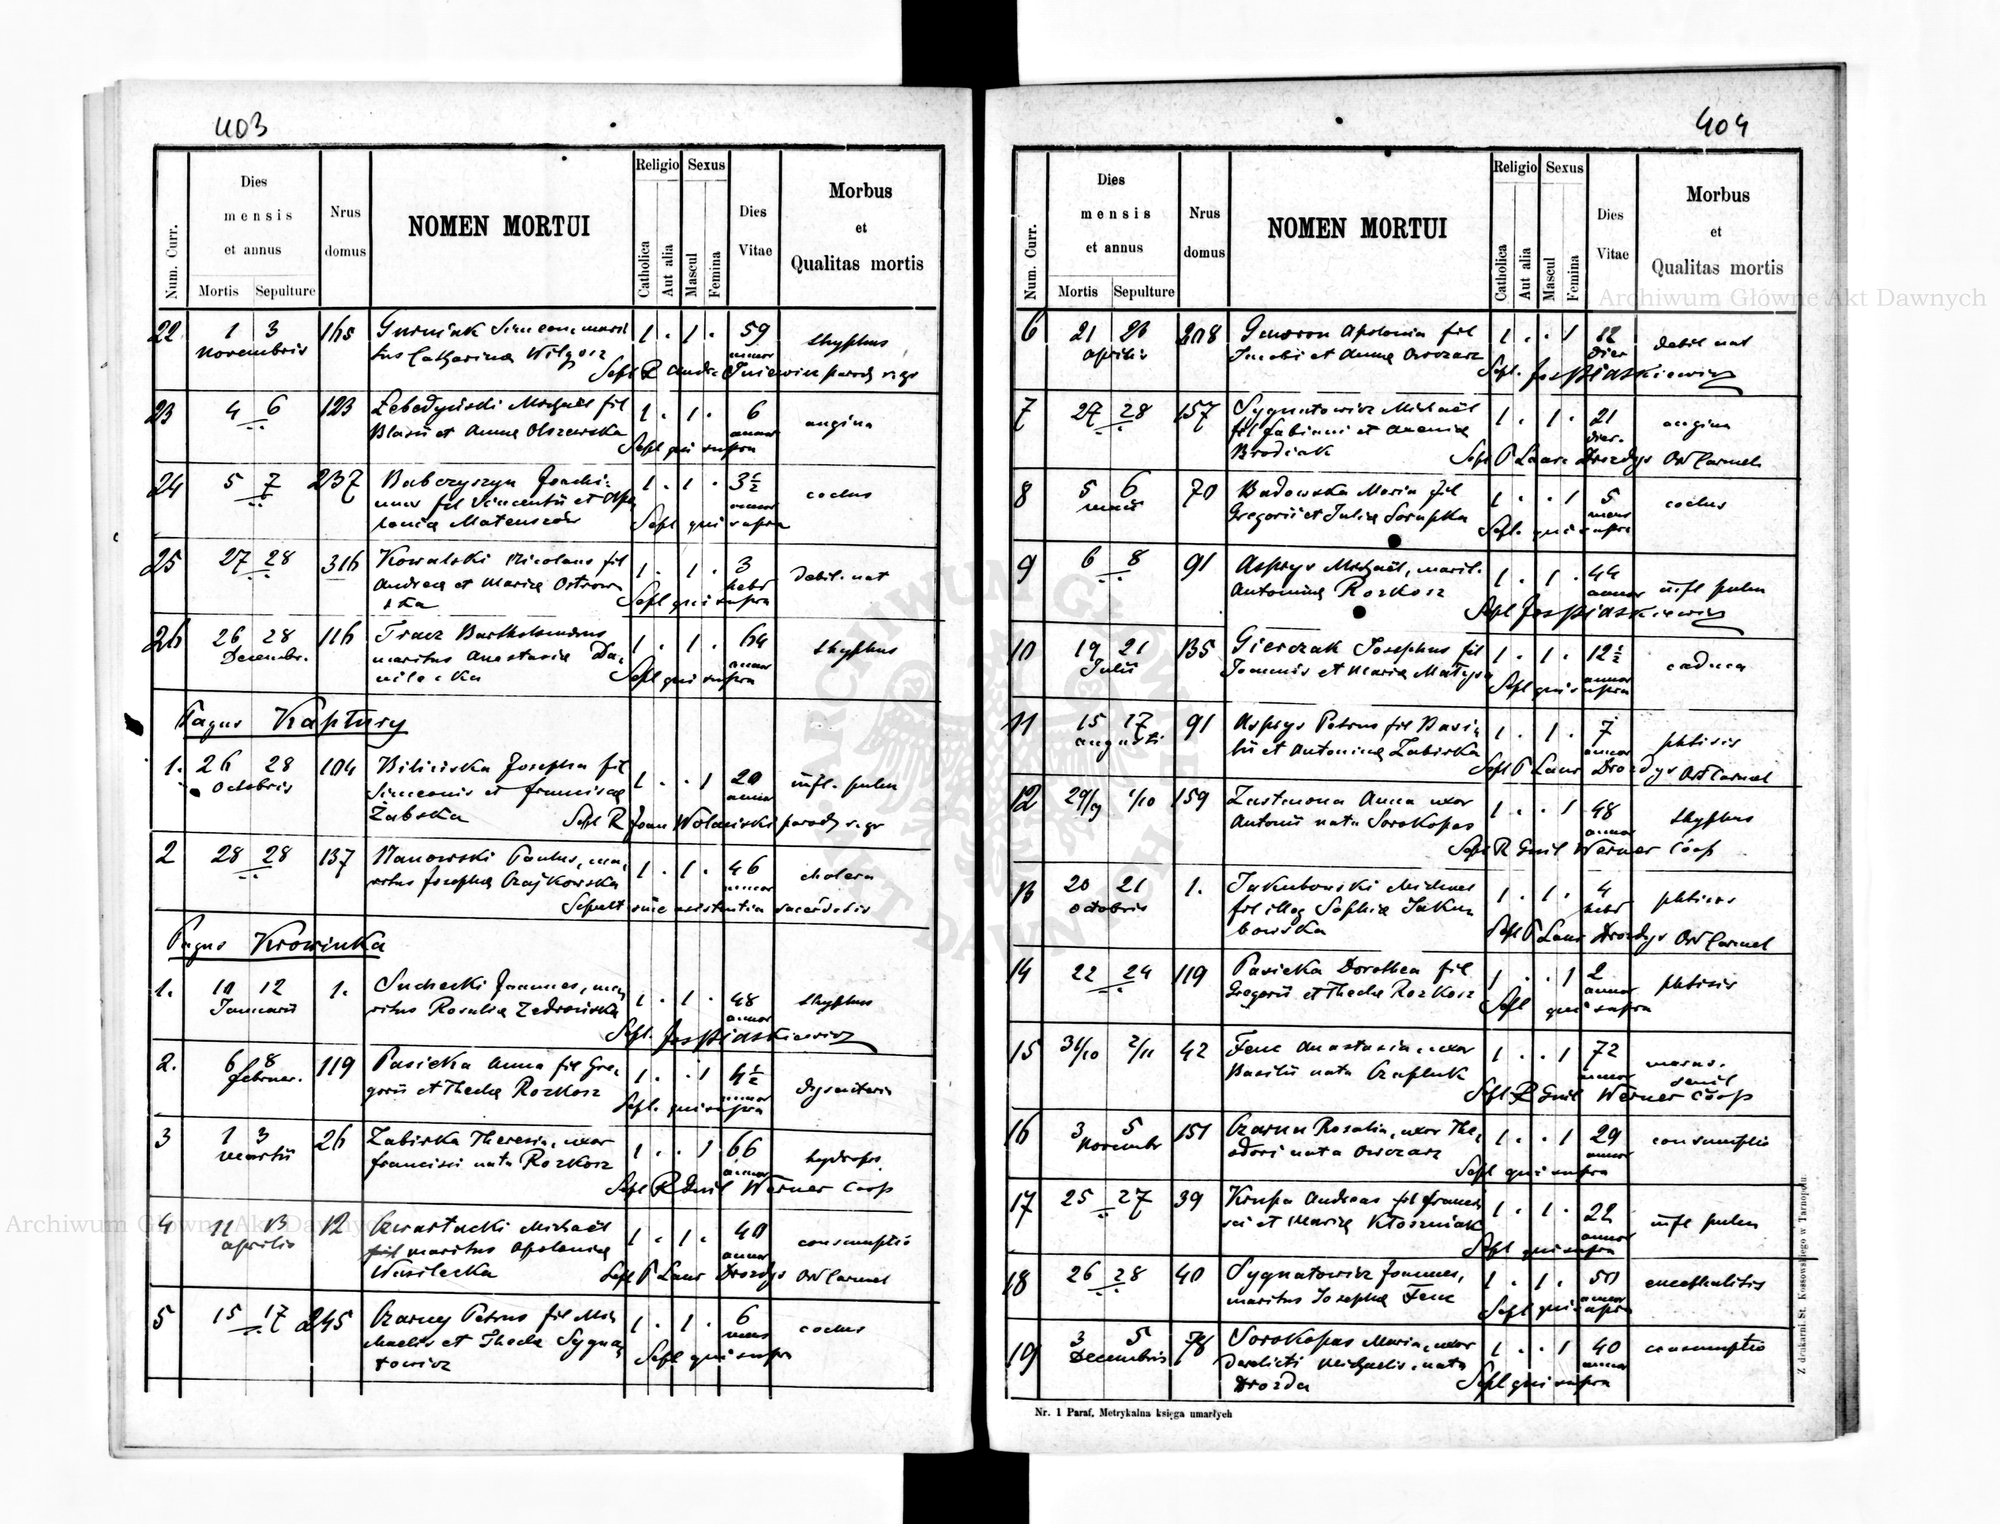 403
Num. Curr.
Dies
mensis
et annus
Mortis Sepulture
Nrus
domus
NOMEN MORTUI
Religio Sexus
Catholica
Aut alia
Mascul
Femina
Dies
Vitae
Morbus
et
Qualitas mortis
22 1 3 165 Simeon, mari- 1 . 1 . 59 thyphus
Novembris tus Catharinæ Wilgosz annor
Sepl R paroch r. gr
23 4 6 123 Zebedyński Michaël fil 1 . 1 . 6 angina
Blasii et Annæ Olszewska annor
Sepl qui supra
24 5 7 237 Babczyszyn Joachi- 1 . 1 . 3½ coctus
mus fil Vincentii et Apo annor
loniæ Mateuszów Sepl qui supra
25 27 28 316 Kowalski Nicolaus fil 1 . 1 . 3 debil. nat
Andreæ et Mariæ Ostrow hebd
ska Sepl qui supra
26 26 28 116 Tracz Bartholomæus 1 . 1 . 64 thyphus
Decembr. maritus Anastasiæ Da- annor
nilecka Sepl qui supra
Pagus Kaptury
1. 26 28 104 Bilińska Josepha fil 1 . . 1 20 infl. pulm
Octobris Simeonis et Franciscæ annor
Żabska Sepl R Joan Wolański paroch r. gr
2 28 28 137 Nanowski Paulus, ma- 1 . 1 . 46 cholera
ritus Josephæ Czajkowska annor
Sepult sine asistentia sacerdotis
Pagus Krowinka
1. 10 12 1. Suchecki Joannes, ma- 1 . 1 . 48 thyphus
Januarii ritus Rosaliæ annor
Sepl. Jos Piaskiewicz
2. 6 8 119 Pasieka Anna fil Gre- 1 . . 1 4½ dysenteria
Februar. gorii et Theclæ Rozkosz annor
Sepl. qui supra
3 1 3 26 Zabirka Theresia, uxor 1 . . 1 66 hydrops.
Martii Francisci nata Rozkosz annor
Sepl R Guil Werner Coop
4 11 13 12 Czwartacki Michaël 1 . 1 . 40 consumptio
Aprilis fil maritus Apoloniæ annor
Wasilecka Sepl P Laur Drozdys Ord Carmel
5 15 17 245 Czarny Petrus fil Mi- 1 . 1 . 6 coctus
chaelis et Theclæ Sygna- mens
towicz Sepl qui supra
404
Num. Curr.
Dies
mensis
et annus
Mortis Sepulture
Nrus
domus
NOMEN MORTUI
Religio Sexus
Catholica
Aut alia
Mascul
Femina
Dies
Vitae
Morbus
et
Qualitas mortis
6 21 23 208 Apolonia fil 1 . . 1 12 debil nat
Aprilis Jacobi et Annæ Owczarz dier
Sepl. Jos Piaskiewicz
7 27 28 157 Sygnatowicz Michaël 1 . 1 . 21 angina
fil Fabiani et Axeniæ dier.
Brodiak Sepl P Laur Drozdys Ord Carmel
8 5 6 70 Badowska Maria fil 1 . . 1 5 coctus
Maii Gregorii et Juliæ Sorupka mens
Sepl. qui supra
9 6 8 91 Aspsys Michaël, marit. 1 . 1 . 44 infl pulm
Antoninæ Rozkosz annor
Sepl Jos Piaskiewicz
10 19 21 135 Gierczak Josephus fil 1 . 1 . 12½ caduca
Julii Joannis et Mariæ Matys annor
Sepl qui supra
11 15 17 91 Aspsys Petrus fil Basi- 1 . 1 . 7 phtisis
Augusti lii et Antoninæ Zabirka annor
Sepl P Laur Drozdys Ord Carmel
12 29/9 1/10 159 Zastawna Anna uxor 1 . . 1 48 thyphus
Antonii nata Sorokopas annor
Sepl R Guil Werner Coop
13 20 21 1. Jakubowski Michael 1 . 1 . 4 phtisis
Octobris fil illeg Sophiæ Jaku- hebd
bowska Sepl P Laur Drozdys Ord Carmel
14 22 24 119 Pasieka Dorothea fil 1 . . 1 2 phtisis
Gregorii et Theclæ Rozkosz annor
Sepl qui supra
15 31/10 2/11 42 Fenc Anastasia, uxor 1 . . 1 72 maras.
Basilii nata Czapluk annor senil
Sepl R Guil Werner Coop
16 3 5 151 Czarna Rosalia, uxor The- 1 . . 1 29 consumptio
Novembr odori nata Owczarz annor
Sepl qui supra
17 25 27 39 Krupa Andreas fil Franci- 1 . 1 . 22 infl pulm
sci et Mariæ Kłoszniak annor
Sepl qui supra
18 26 28 40 Sygnatowicz Joannes, 1 . 1 . 50 encephalitis
maritus Josephæ Fenc annor
Sepl qui supra
19 3 5 78 Sorokopas Maria, uxor 1 . . 1 40 consumptio
Decembris derelicti Michaelis, nata annor
Drozda Sepl qui supra
Nr. 1 Paraf. Metrykalna księga umarłych
Z drukarni. St. Kossowskiego w Tarnopolu.
Archiwum Główne Akt Dawnych
Archiwum Główne Akt Dawnych
ARCHIWUM GŁÓWNE AKT DAWNYCH